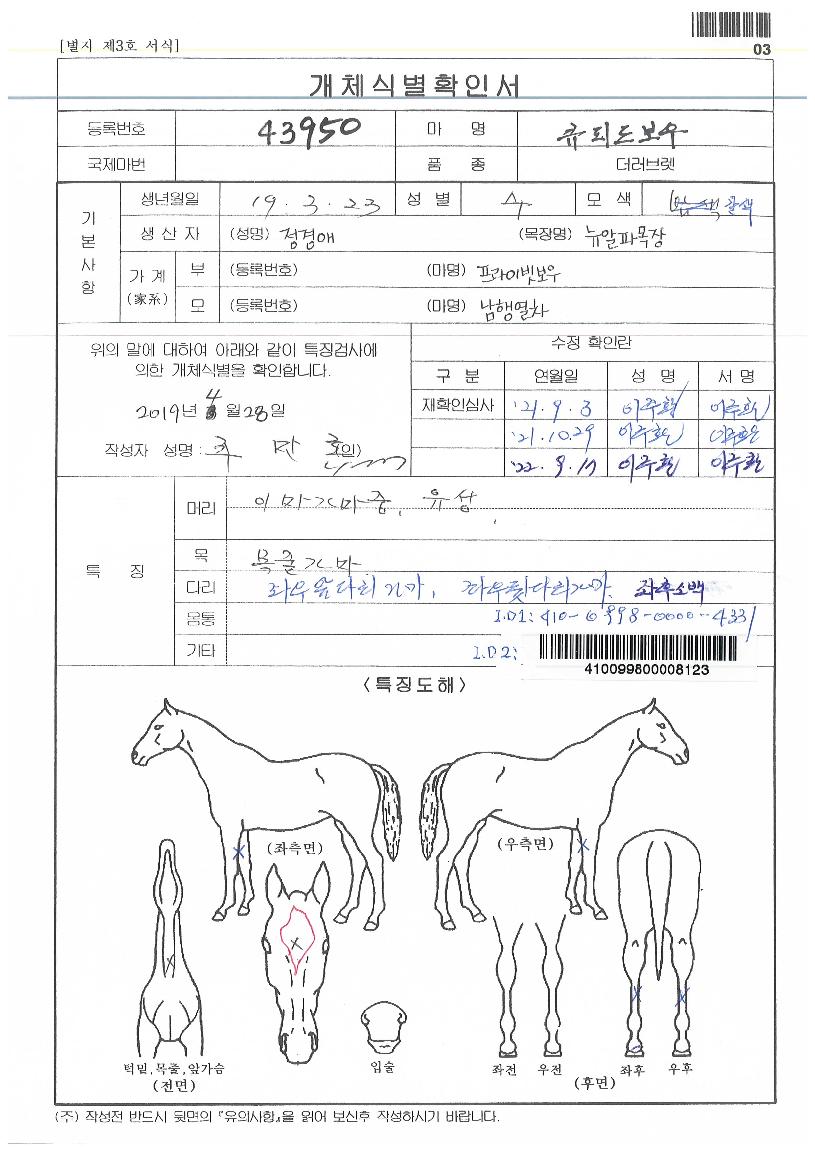 [별지 제3호 서식]
03
개체식별확인서
등록번호 43950 마 명 큐피드보우
국제마번 품 종 더러브렛
기본사항
생년월일 19. 3. 23 성 별 수 모 색 갈색
생 산 자 (성명) 정경애 (목장명) 뉴알파목장
가 계 (家系)
부 (등록번호) (마명) 프라이빗보우
모 (등록번호) (마명) 남행열차
위의 말에 대하여 아래와 같이 특징검사에
의한 개체식별을 확인합니다.
2019년 4월 28일
작성자 성명 : (인)
수정 확인란
구 분 연월일 성 명 서 명
재확인심사 '21. 9. 3 이주환 이주환
'21. 10. 29 이주환 이주환
'22. 9. 이주환 이주환
특 징
머리 이마가마중, 유성
목 목줄가마
다리 좌우앞다리가마, 좌우뒷다리가마, 좌후소백
몸통 I.D1: 410-0998-0000-4331
기타 I.D2: 410099800008123
〈특징도해〉
(좌측면)
(우측면)
턱밑,목줄,앞가슴
(전면)
입술
좌전 우전 좌후 우후
(후면)
(주) 작성전 반드시 뒷면의 『유의사항』을 읽어 보신후 작성하시기 바랍니다.